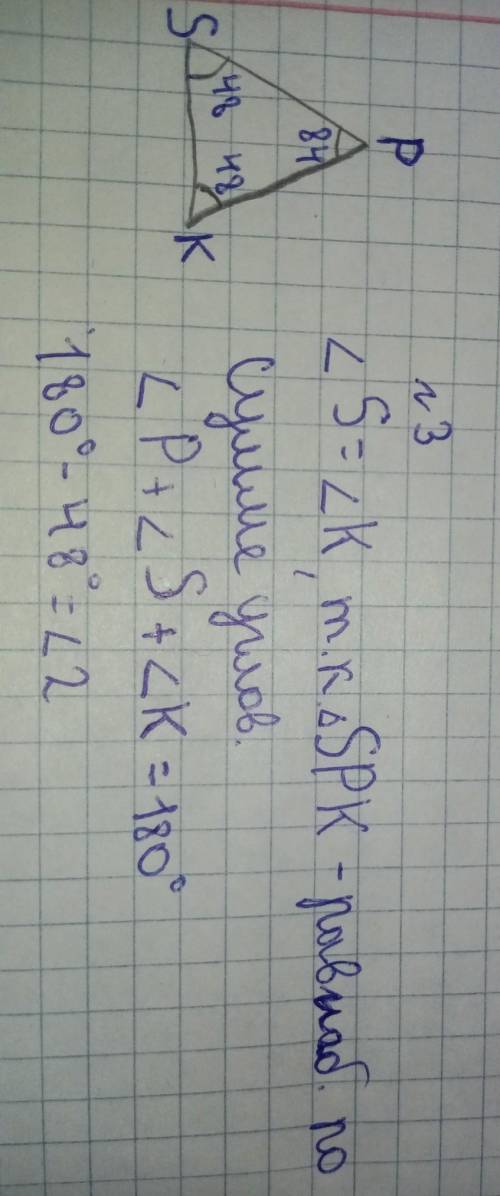 S 48 84 P
48 K
№3
∠S = ∠K, т.к. ΔSPK - равноб. по
Сумме углов.
∠P + ∠S + ∠K = 180°
180° - 48° = ∠2